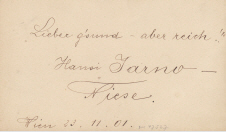 „Lieber g'sund - aber reich!"
Hansi Jarno -
Niese.
Wien 23. 11. 01.